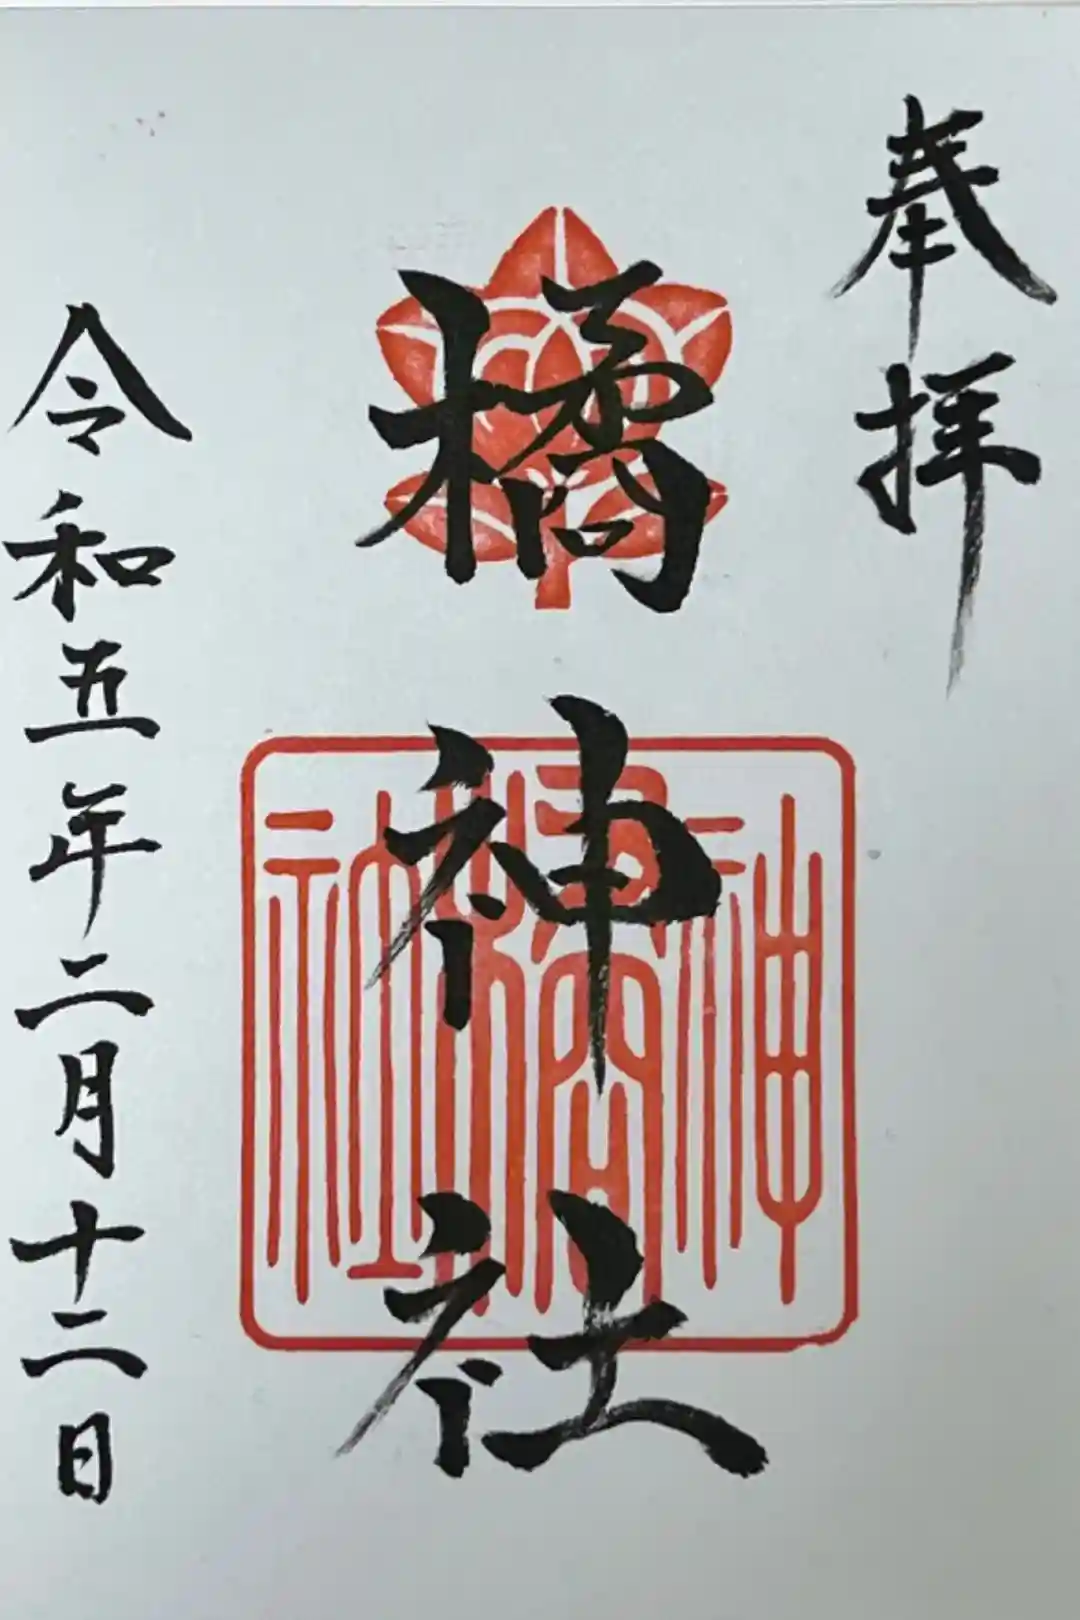 奉拝
橘神社
神橘社
令和五年二月十二日